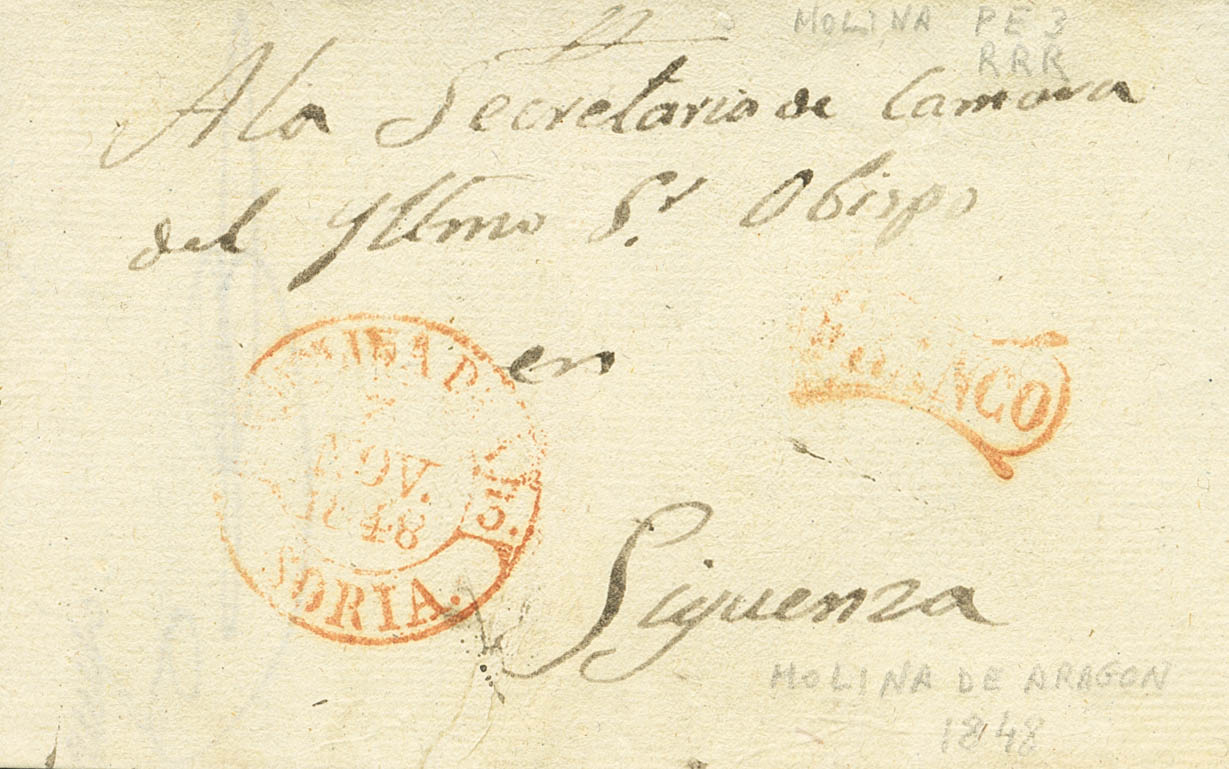 MOLINA PE 3
RRR
A la Secretaria de Camara
del Yllmo Sr Obispo
en
FRANCO
NOV.
1848
SORIA.
Siguenza
MOLINA DE ARAGON
1848